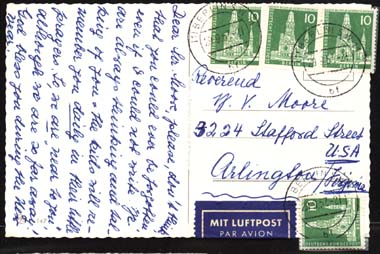 Dear Mr. Moore, please, don't think
that you could ever be forgotten
even if I could not write. We
are always thinking and tal-
king of you + the kids will re-
member you daily in their little
prayers. I, too, am near you,
although we are so far away,
God bless you during the New
Year.
10
10
10
BERLIN
Reverend
V. V. Moore
3224 Stafford Street
USA
Arlington/Virginia
MIT LUFTPOST
PAR AVION
10
DEUTSCHE BUNDESPOST